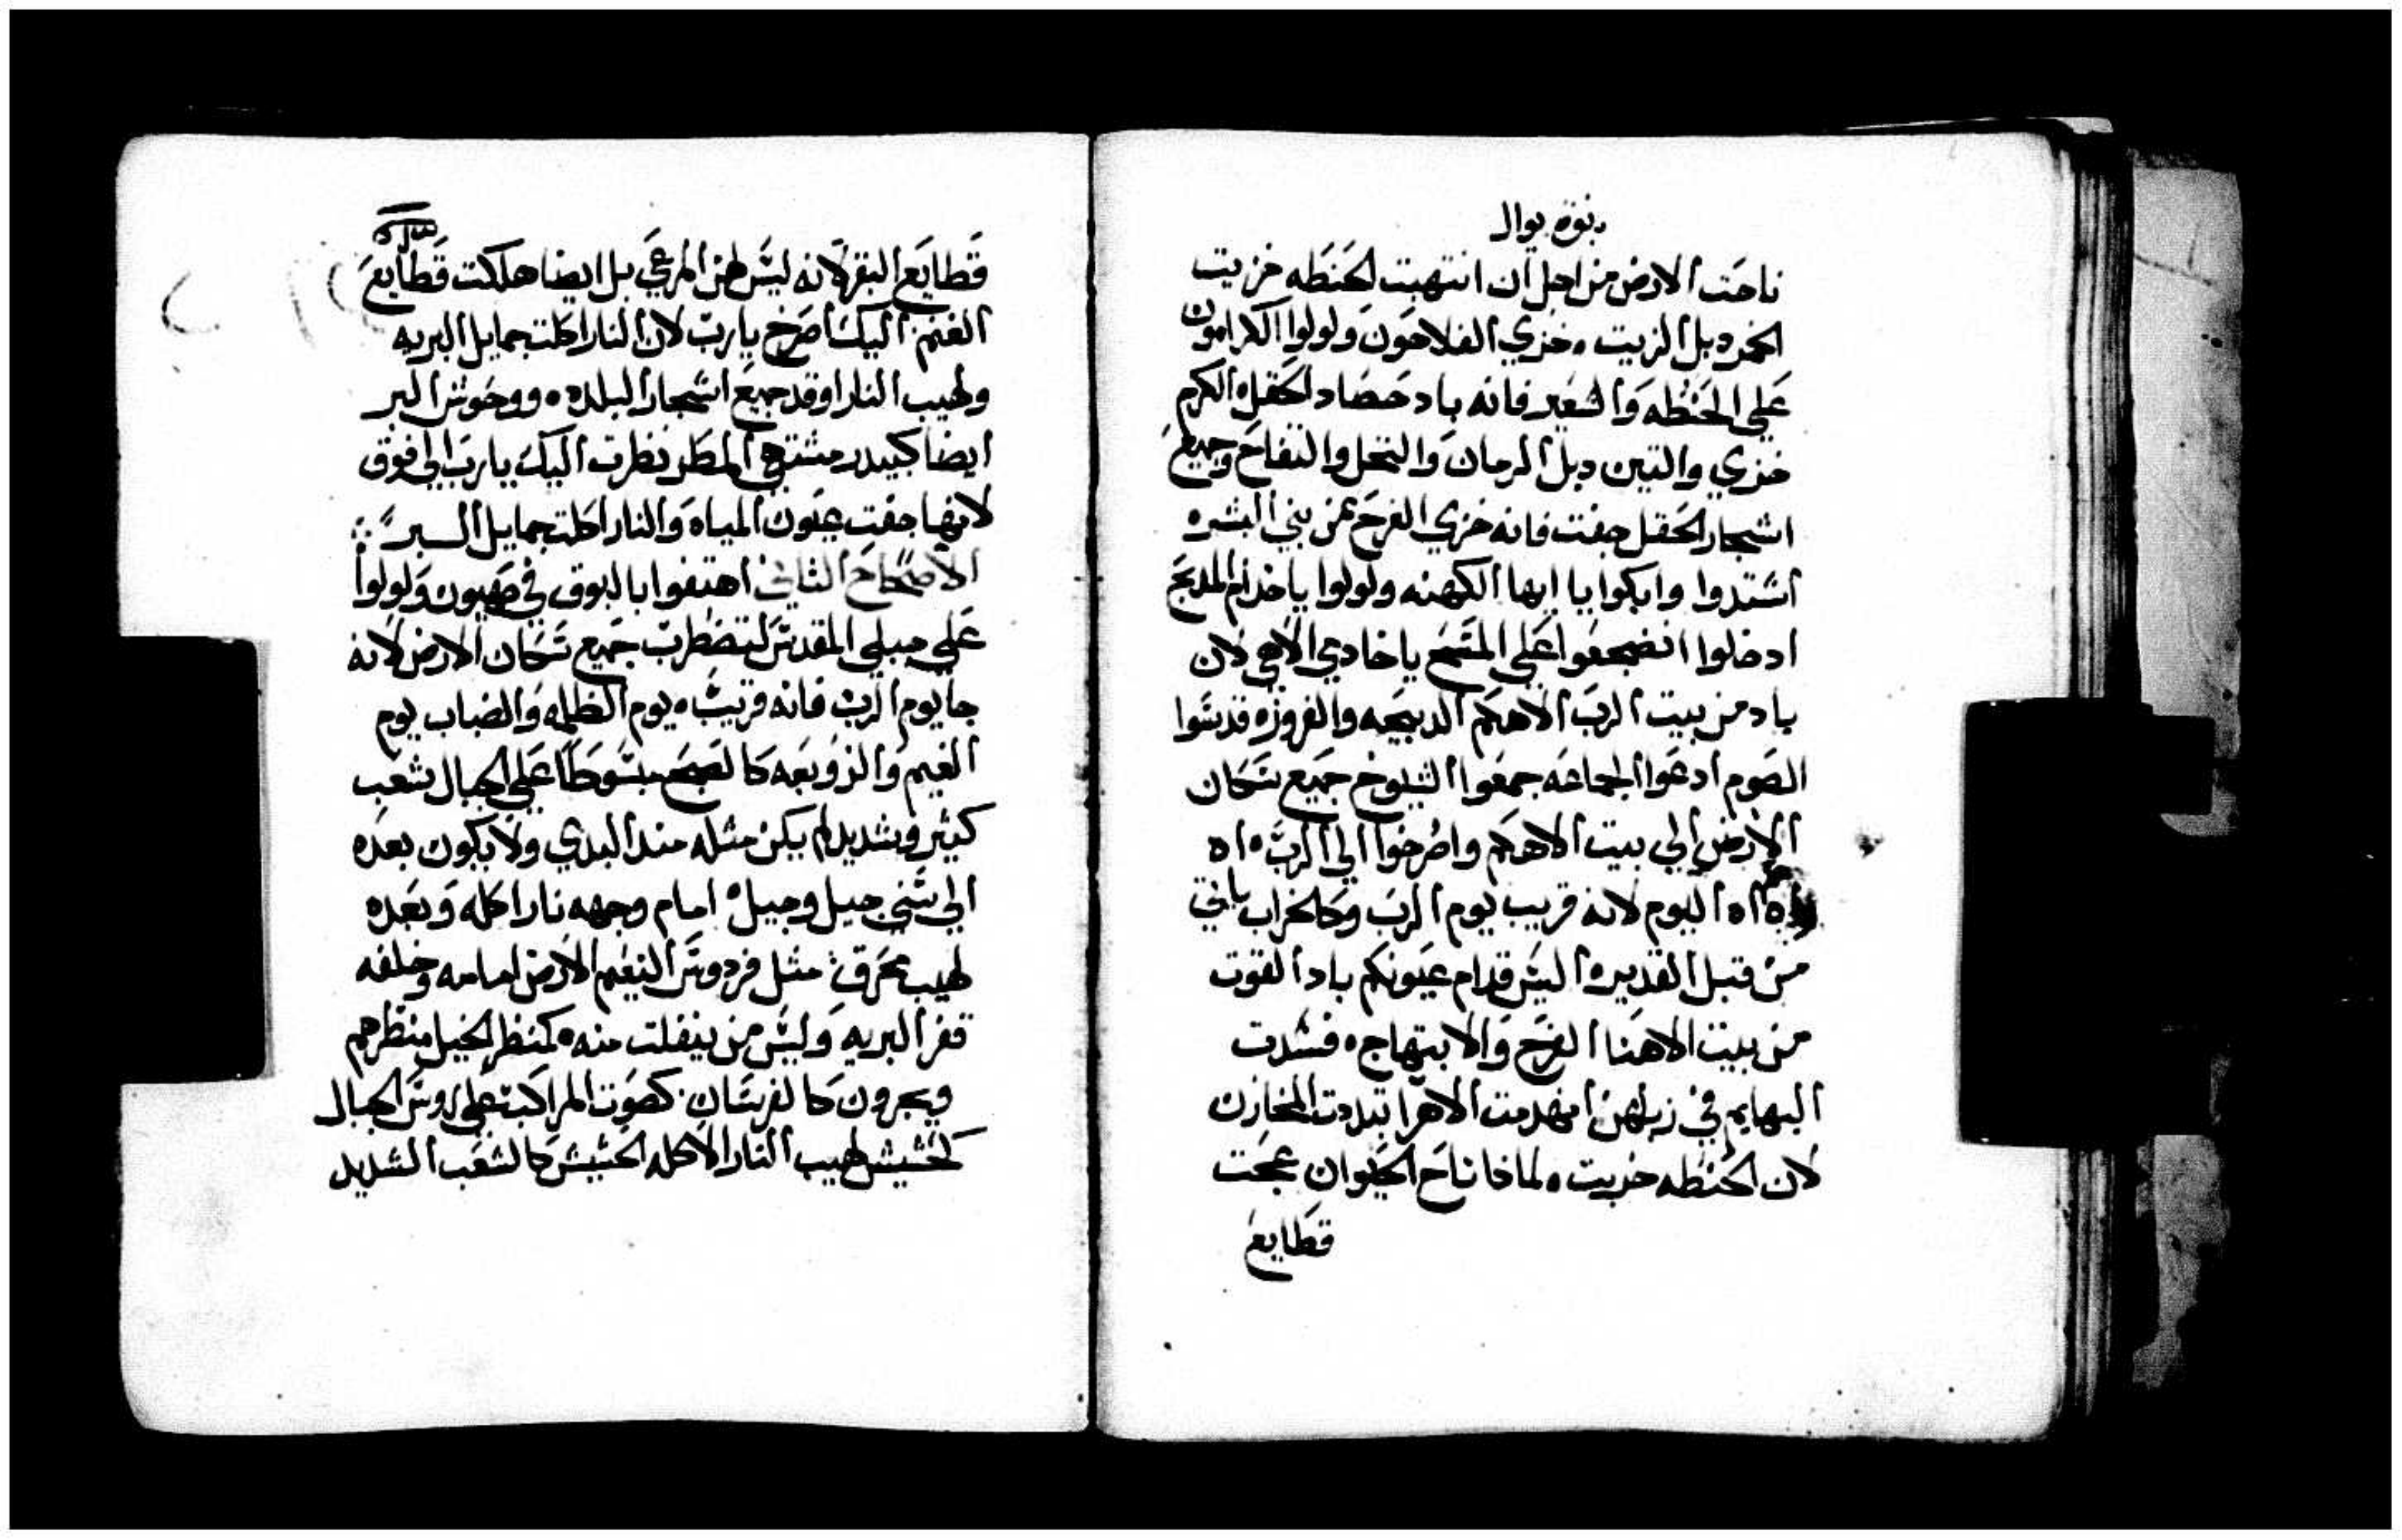 نبوة يوال
ناحت الارض من اجل ان انتهبت الحنطه خزيت
الخمر دبل الزيت. خزي الفلاحون ولولوا الكرامون
علي الحنطه والشعير فانه باد حصاد الحقل ه الكرم
خزي والتين دبل الرمان والنخل والتفاح وجميع
اشجار الحقل جفت فانه خزي الفرح من بني البشر ه
اشتدوا وابكوا يا ايها الكهنه ولولوا يا خدام المدبح
ادخلوا انضجعوا علي المسح يا خادمي الاهي لان
باد من بيت الرب الاهكم الدبيحه والفروزه قدسوا
الصوم ادعوا الجماعه جمعوا الشيوخ جميع سكان
الارض الي بيت الاهكم واصرخوا الي الرب ه اه
اه اه اليوم لانه قريب يوم الرب وكالخراب ياتي
من قبل القدير ه اليس قدام عيونكم باد القوت
من بيت الاهنا الفرح والابتهاج ه فسدت
البهايم في زبلهن انهدمت الاهرا تبددت المخازن
لان الحنطه خزيت ه لماذا ناح الحيوان عجت
قطايع
قطايع البقر لانه ليس لهن المرعي بل ايضا هلكت قطايع
الغنم اليك اصرخ يا رب لان النار اكلت جمايل البريه
ولهيب النار اوقد جميع اشجار البلده ه ووحوش البر
ايضا كبيدر مشتهي المطر نظرت اليك يا رب الي فوق
لانها جفت عيون المياه والنار اكلت جمايل البر
الاصحاح الثاني اهتفوا بالبوق في صهيون ولولوا
علي جبلي المقدس لتضطرب جميع سكان الارض لانه
جا يوم الرب فانه قريب ه يوم الظلمه والضباب يوم
الغيم والزوبعه كالصبح مبسوطا علي الجبال شعب
كثير وشديد لم يكن مثله مند البدي ولا يكون بعده
الي سني جيل وجيل ه امام وجهه نار اكله وبعده
لهيب محرق مثل فردوس النعيم الارض امامه وخلفه
قفر البريه وليس من ينفلت منه ه كمنظر الخيل منظرهم
ويجرون كالفرسان. كصوت المراكب علي روس الجبال
كخشيش لهيب النار الاكله الحشيش كالشعب الشديد